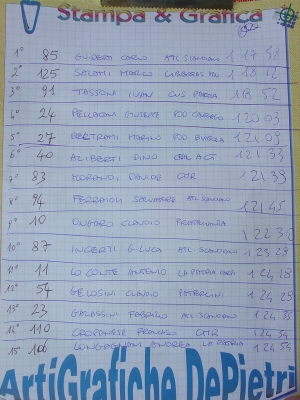 Stampa & Grafica
1° 85 GUIDETTI CARLO ATL-SCANDIANO 1 17 58
2° 125 SALAMI MARCO 1 18 12
3° 91 TASSONI IVAN CUS PARMA 1 18 52
4° 24 GIUSEPPE POD CORREGGIO 1 20 03
5° 27 BERTRAMI MARINO POD 1 21 09
6° 40 ALIBERTI DINO 1 21 33
7° 83 MORANDI DAVIDE CTR 1 21 39
8° 94 FERRAIOLI SALVATORE ATL-SCANDIANO 1 21 45
9° 10 CLAUDIO 1 22 30
10° 87 INCERTI G.LUCA ATL-SCANDIANO 1 23 29
11° 11 LO CONTE ANTONIO LA PATRIA 1 24 18
12° 54 GELOSINI CLAUDIO 1 24 29
13° 23 FABRIZIO ATL-SCANDIANO 1 24 35
14° 110 CTR 1 24 39
15° 106 LONGAGNANI ANDREA LA PATRIA 1 24 54
ArtiGrafiche DePietri